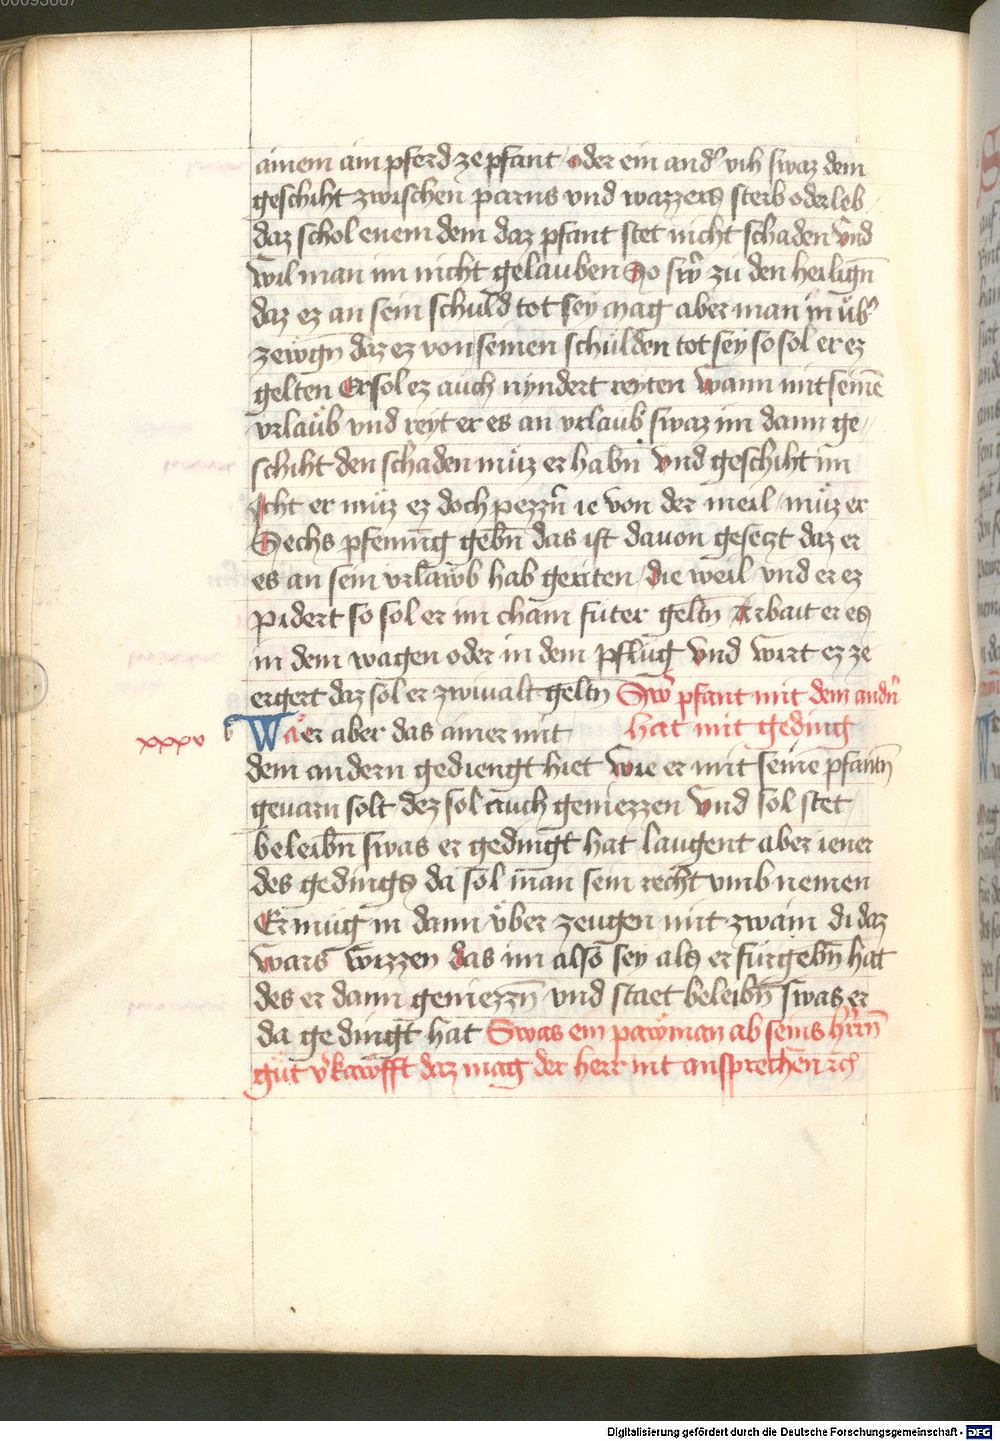 00093667
ainem ain pferd ze pfant oder ein and͛ vih swaz dem
geschiht zwischen parns vnd wazzers sterb oder leb
daz schol enem dem daz pfant stet nicht schaden vnd
wil man im nicht gelauben So sw͛ zu den heilign̄
daz ez an sein schuld tot sey mag aber man in vb͛
zewgn daz ez von seinen schulden tot sey so sol er ez
gelten Er sol ez auch nyndert reyten wann mit seinē
vrlaub vnd reyt er es an vrlaub swaz im dann ge
schiht den schaden muz er habn̄ vnd geschiht im
Icht er muz ez doch pezzn̄ ie von der meil muz er
Sechs pfenning gebn̄ das ist dauon gesetzt daz er
es an sein vrlawb hab geriten die weil vnd er ez
pidert so sol er im cham futer geltn̄ Arbait er es
in dem wagen oder in dem pflug vnd wirt ez ze
ergert daz sol er zwiualt geltn Sw͛ pfant mit dem andn͛
xxxv b Waer aber das ainer mit hat mit geding
dem andern gediengt hiet wie er mit seinē pfantn̄
geuarn solt dez sol auch geniezzen vnd sol stet
beleibn̄ swas er gedingt hat laugent aber iener
des gedings da sol man sein recht vmb nemen
Er mug in dann vber zeugen mit zwain di daz
wars wizzen das im also sey als er furgebn̄ hat
des er dann geniezzn̄ vnd staet beleibn̄ swas er
da gedingt hat Swas ein pawman ab seins hr͛rn̄
gut v͛kawfft daz mag der herr nit ansprechen rc
Digitalisierung gefördert durch die Deutsche Forschungsgemeinschaft - DFG